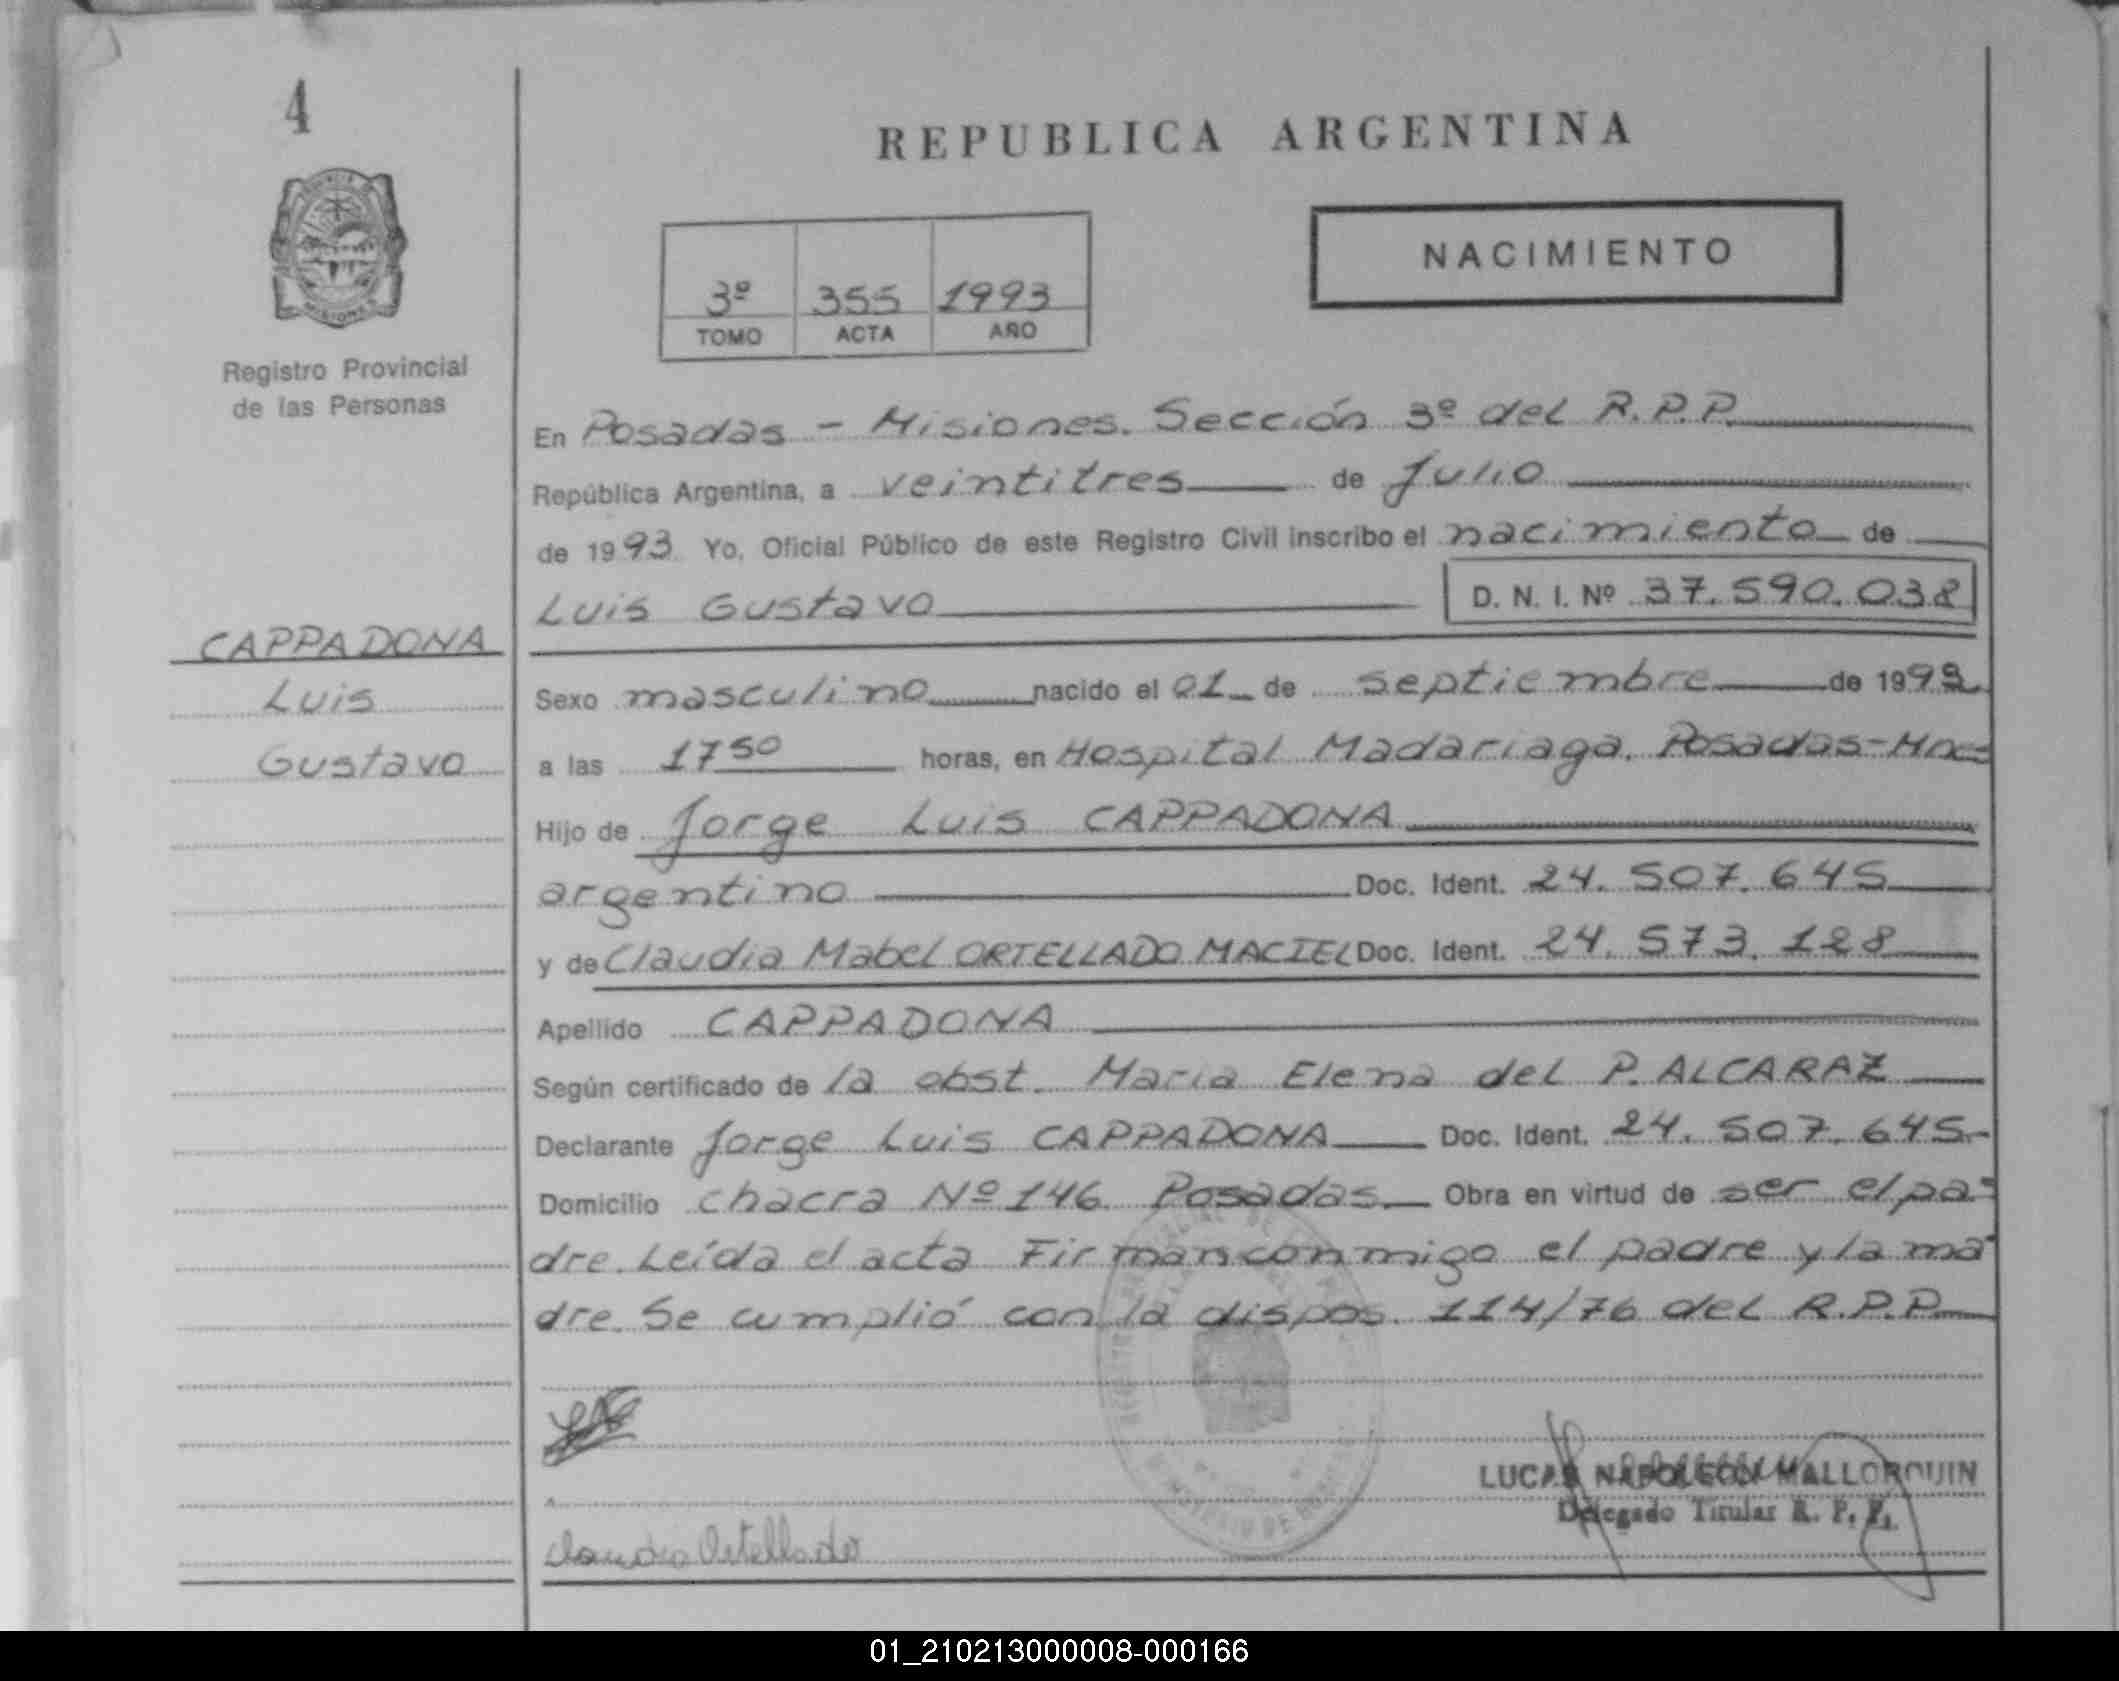 4
REPUBLICA ARGENTINA
NACIMIENTO
3º 355 1993
TOMO ACTA AÑO
Registro Provincial
de las Personas
En Posadas - Misiones. Sección 3º del R.P.P.
República Argentina, a veintitres de Julio
de 1993 Yo, Oficial Público de este Registro Civil inscribo el nacimiento de
Luis Gustavo D. N. I. Nº 37.590.038
CAPPADONA
Luis
Gustavo
Sexo masculino nacido el 01 de septiembre de 199
a las 17 50 horas, en Hospital Madariaga. Posadas-Mnes
Hijo de Jorge Luis CAPPADONA
argentino Doc. Ident. 24.507.645
y de Claudia Mabel ORTELLADO MACIEL Doc. Ident. 24.573.128
Apellido CAPPADONA
Según certificado de la obst. Maria Elena del P. ALCARAZ
Declarante Jorge Luis CAPPADONA Doc. Ident. 24.507.645-
Domicilio chacra Nº 146 Posadas. Obra en virtud de ser el pa-
dre. Leída el acta Firman conmigo el padre y la ma-
dre. Se cumplió con la dispos. 114/76 del R.P.P.
LUCAS NAPOLEON MALLORQUIN
Delegado Titular R. P. P.
Claudia Ortellado
01_210213000008-000166